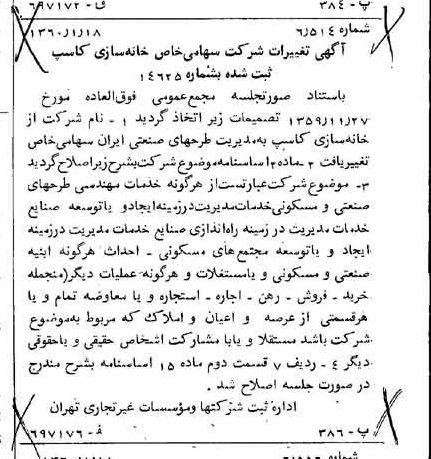 پ - ۳۸۴ ف - ۶۹۷۱۷۲
شماره ۶/۵۱۴ ۱۳۶۰/۱/۱۸
آگهی تغییرات شرکت سهامی‌خاص خانه‌سازی کاسپ
ثبت شده بشماره ۱۴۶۲۵
باستناد صورتجلسه مجمع‌عمومی فوق‌العاده مورخ
۱۳۵۹/۱۱/۲۷ تصمیمات زیر اتخاذ گردید ۱ - نام شرکت از
خانه‌سازی کاسپ به‌مدیریت طرحهای صنعتی ایران سهامی‌خاص
تغییریافت ۲ - ماده ۲ اساسنامه موضوع شرکت بشرح زیر اصلاح گردید
۳- موضوع شرکت عبارتست از هرگونه خدمات مهندسی طرحهای
صنعتی و مسکونی خدمات مدیریت در زمینه ایجاد و یا توسعه صنایع
خدمات مدیریت در زمینه راه‌اندازی صنایع خدمات مدیریت در زمینه
ایجاد و یا توسعه مجتمع‌های مسکونی - احداث هرگونه ابنیه
صنعتی و مسکونی و یا مستغلات و هرگونه عملیات دیگر (منجمله
خرید - فروش - رهن - اجاره - استجاره و یا معاوضه تمام و یا
هر قسمتی از عرصه و اعیان و املاک که مربوط به‌موضوع
شرکت باشد مستقلا و یا با مشارکت اشخاص حقیقی و یا حقوقی
دیگر ۴ - ردیف ۷ قسمت دوم ماده ۱۵ اساسنامه بشرح مندرج
در صورت جلسه اصلاح شد .
اداره ثبت شرکتها و مؤسسات غیرتجاری تهران
پ - ۳۸۶ ف - ۶۹۷۱۷۶